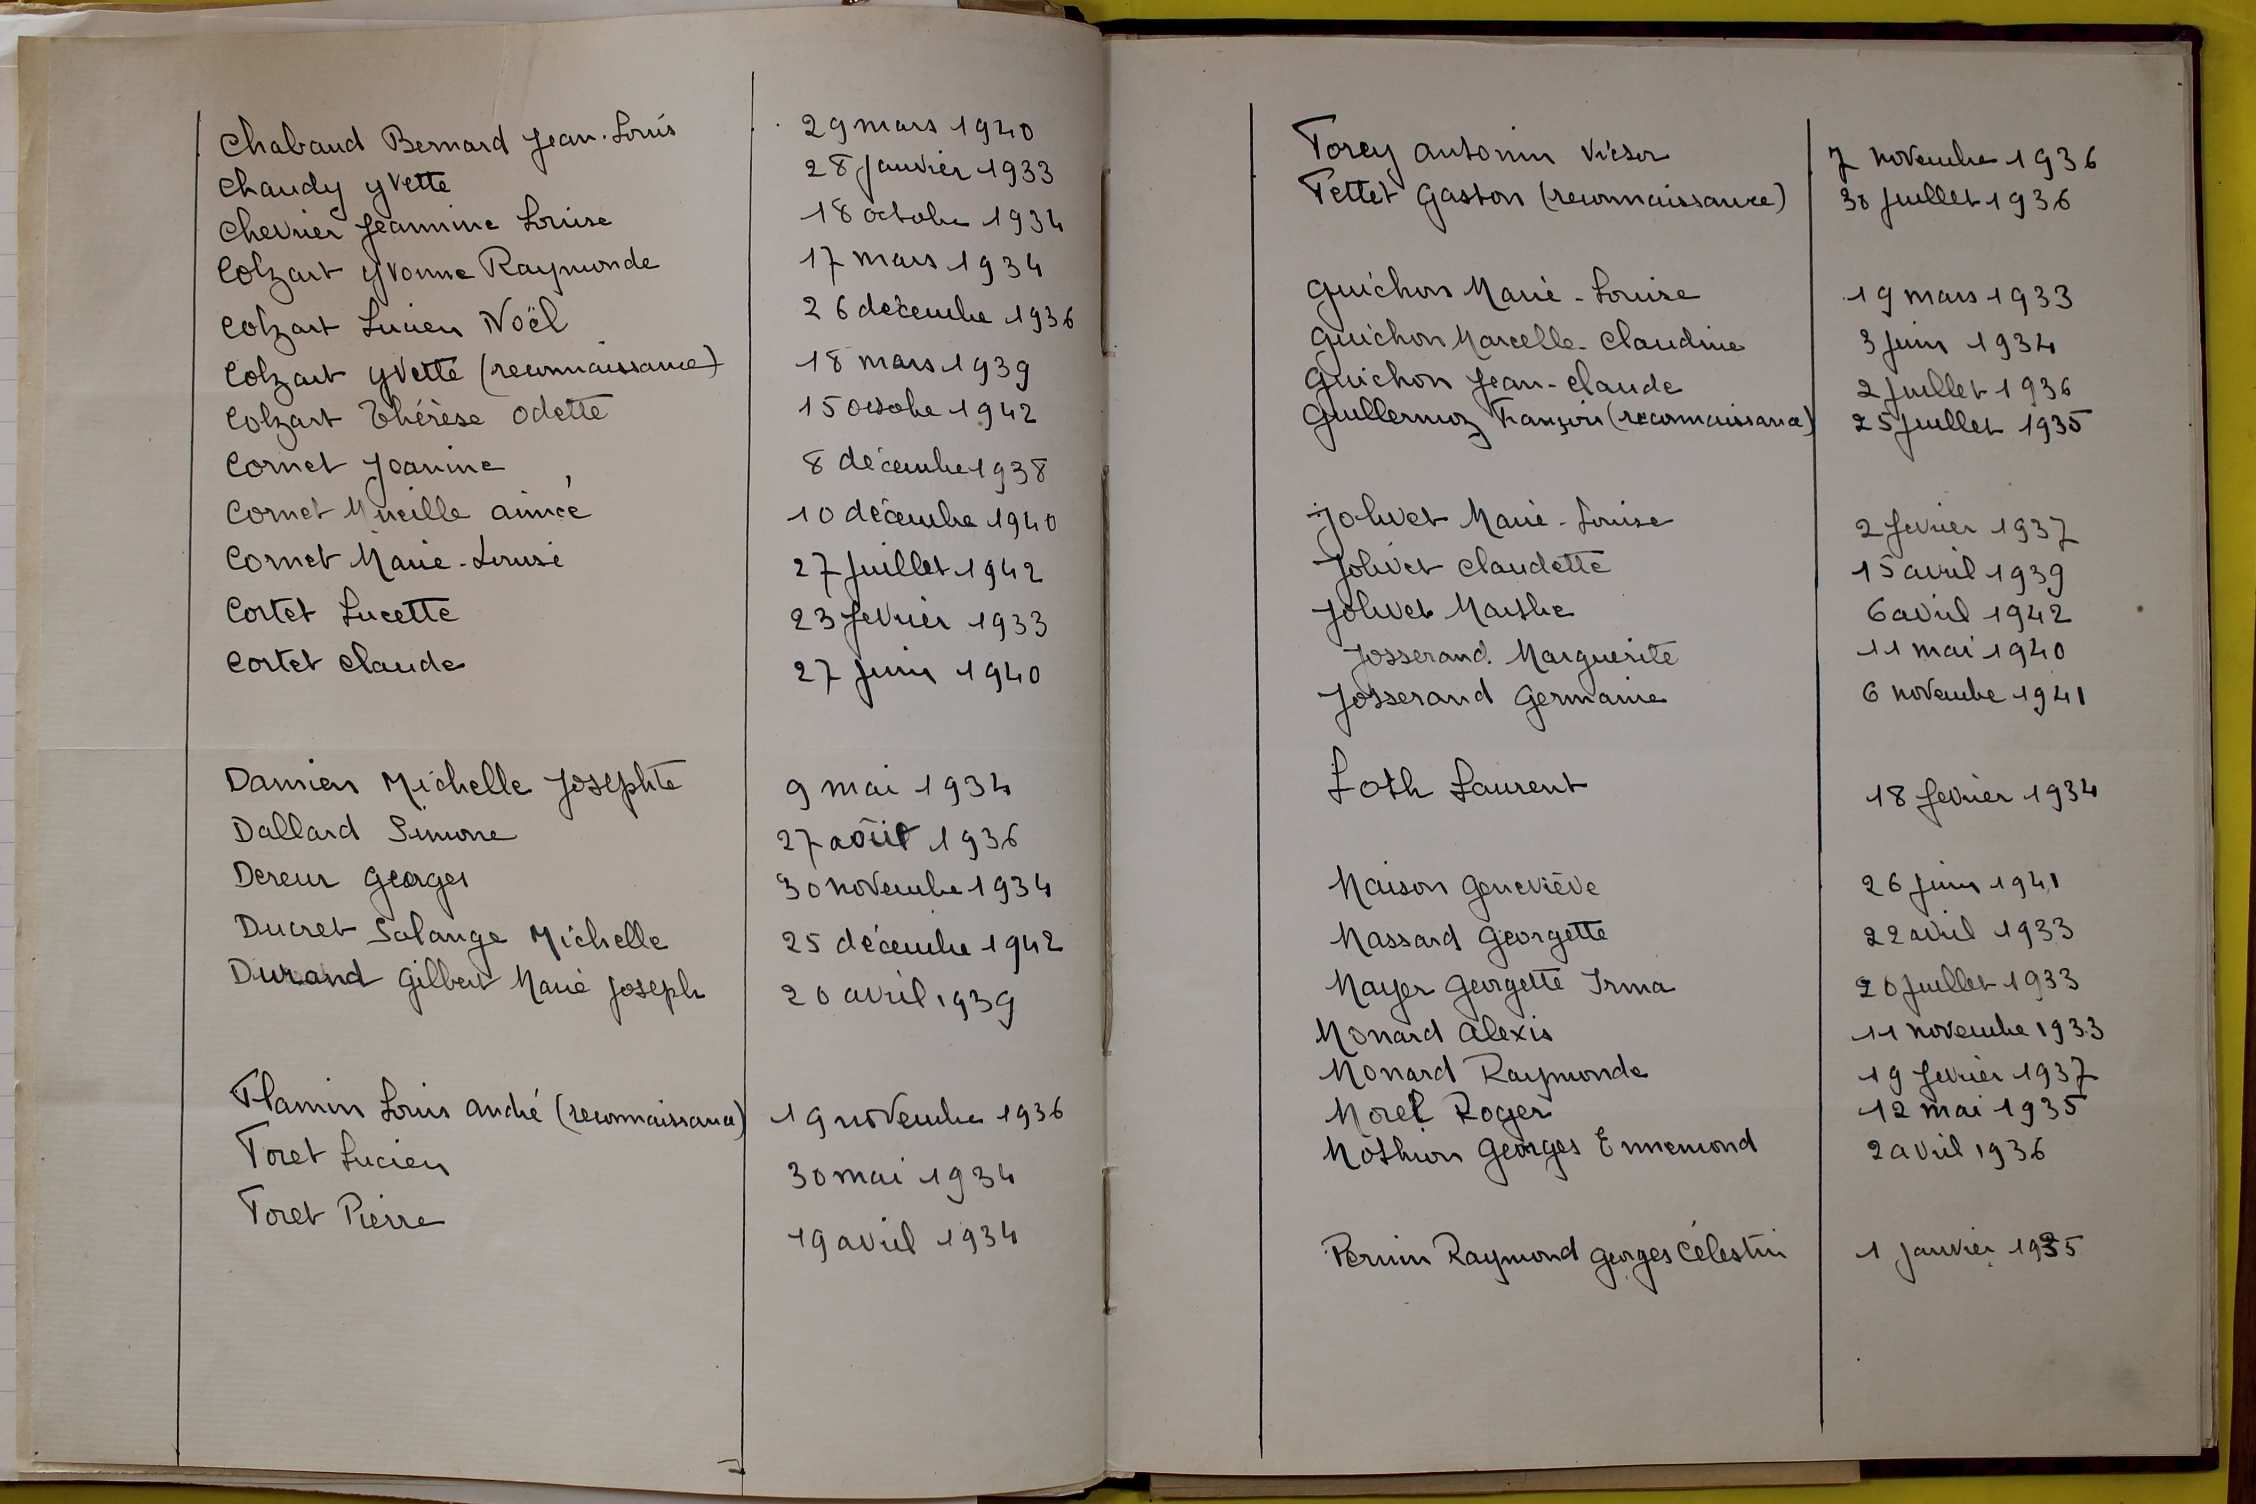 Chabaud Bernard Jean-Louis 29 mars 1940
Chaudy Yvette 28 janvier 1933
Chevrier Jeannine Louise 18 octobre 1934
Colzart Yvonne Raymonde 17 mars 1934
Colzart Lucien Noël 26 décembre 1936
Colzart Yvette (reconnaissance) 18 mars 1939
Colzart Thérèse Odette 15 octobre 1942
Cornet Joanine 8 décembre 1938
Cornet Mireille aimée 10 décembre 1940
Cornet Marie-Louise 27 juillet 1942
Cortet Lucette 23 fevrier 1933
Cortet Claude 27 juin 1940
Damien Michelle Josephte 9 mai 1934
Dallard Simone 27 août 1936
Dereur Georges 30 novembre 1934
Ducret Solange Michelle 25 décembre 1942
Durand Gilbert Marie Joseph 20 avril 1939
Flamin Louis André (reconnaissance) 19 novembre 1936
Foret Lucien 30 mai 1934
Foret Pierre 19 avril 1934
Forey Antonin Victor 7 novembre 1936
Fettet Gaston (reconnaissance) juillet 1936
Guichon Marie-Louise 19 mars 1933
Guichon Marcelle-Claudine 3 juin 1934
Guichon Jean-Claude 2 juillet 1936
Guillermoz François (reconnaissance) 25 juillet 1935
Jolivet Marie-Louise 2 fevrier 1937
Jolivet Claudette 15 avril 1939
Jolivet Marthe 6 avril 1942
Josserand Marguerite 11 mai 1940
Josserand Germaine 6 novembre 1941
Loth Laurent 18 fevrier 1934
Maison Geneviève 26 juin 1941
Massard Georgette 22 avril 1933
Mayer Georgette Irma 20 juillet 1933
Monard Alexis 11 novembre 1933
Monard Raymonde 19 fevrier 1937
Morel Roger 12 mai 1935
Mothion Georges Ennemond 2 avril 1936
Perrin Raymond Georges Célestin 1 janvier 1935